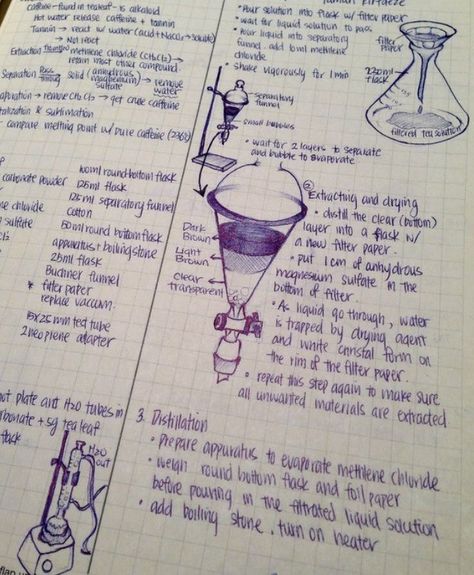 caffeine - found in tealeaf - is alkaloid
Hot water release caffeine + tannin
Tannin → react w/ water (acid + Na2CO3 → soluble)
→ Not react
Extraction methylene chloride (CH2Cl2) →
retain most other compound.
Separation solid (anhydrous magnesium sulfate) → remove water
→ remove CH2Cl2 → get crude caffeine
& sublimation
compare melting point w/ pure caffeine
carbonate powder
chloride
sulfate
100ml round-bottom flask
125ml flask
125ml separatory funnel
cotton
50ml round bottom flask
apparatus + boiling stone
25ml flask
Buchner funnel
* filter paper
replace vacuum.
15x25 mm test tube
2 neoprene adapter
plate and H2O tubes in
+ 5g tea leaf
flask
H2O
out
• Pour solution into flask w/ filter paper
• wait for liquid solution to pass
• Pour liquid into separatory
funnel. add 10ml methylene
chloride
• shake vigorously for 1 min
separatory
funnel
small bubbles
• wait for 2 layers to separate
and bubble to evaporate
filter
paper
flask
filtered tea solution
Dark
Brown
Light
Brown
clear
transparent
② Extracting and drying
• distill the clear (bottom)
layer into a flask w/
a new filter paper.
• put 1cm of anhydrous
magnesium sulfate in the
bottom of filter.
• As liquid go through, water
is trapped by drying agent
and white cristal form on
the rim of the filter paper.
• repeat this step again to make sure
all unwanted materials are extracted
3. Distillation
• prepare apparatus to evaporate methlene chloride
• weigh round bottom flask and foil paper
before pouring in the filtrated liquid solution
• add boiling stone. turn on heater